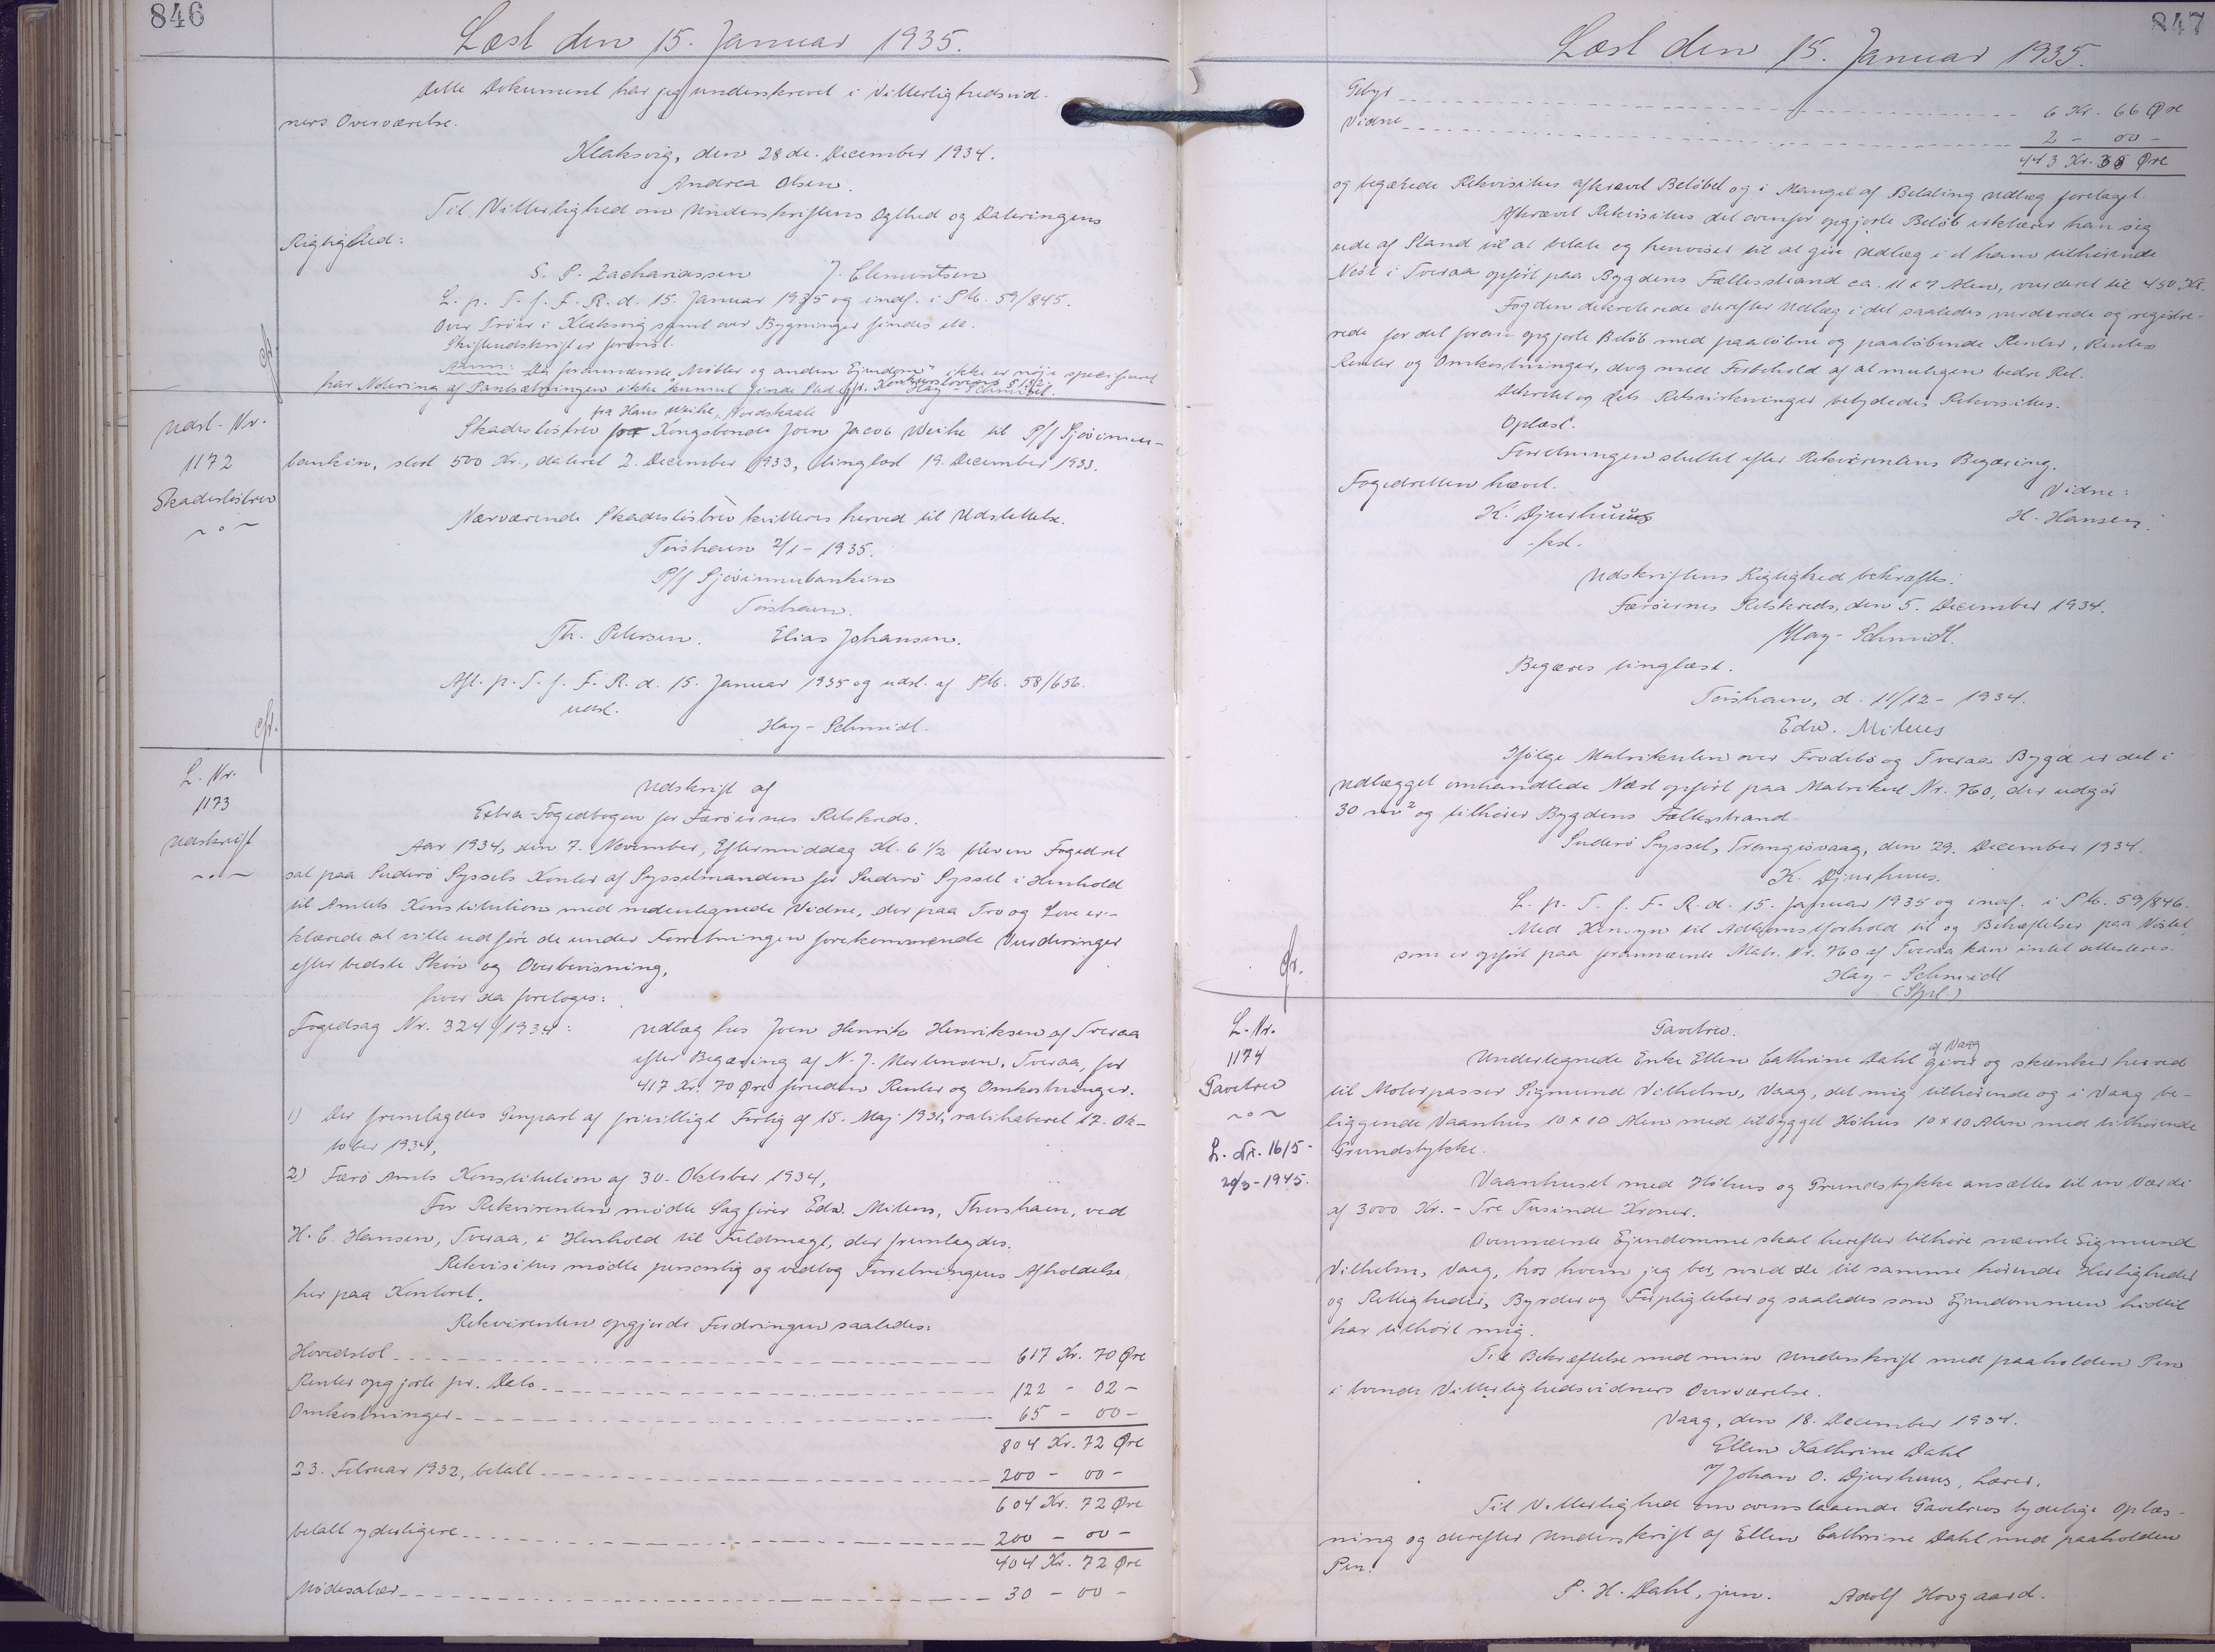 846
Læst den 15. Januar 1935.
Dette Dokument har jeg underskrevet i Vitterlighedsvid-
ners Overværelse.
Klaksvig, den 28de. December 1934.
Andrea Olsen.
Til Vitterlighed om Underskriftens Ægthed og Dateringens
Rigtighed:
S. P. Zachariassen J. Clementsen
L. p. T. f. F. R. d. 15. Januar 1935 og indf. i Ptb. 59/845.
Over Tröer i Klaksvig samt over Bygninger findes ele.
Skifteudskrifter forevist.
Anm: Da forannævnte Möbler og anden Ejendom ikke er nöje specificeret
har Notering af Pantsætningen ikke kunnet finde Sted cfr. Konkurslovens § 152.
Hay-Schmidt.
Udsl. Nr.
1172
Skadeslösbrev
fra Hans Weihe, Nordskaale
Skadeslösbrev for Kongsbonde Joen Jacob Weihe til P/f Sjóvinnu-
bankin, stort 500 Kr., dateret 2. December 1933, tinglæst 19. December 1933.
Nærværende Skadeslösbrev kvitteres herved til Udslettelse.
Tórshavn 2/1 - 1935.
P/f Sjóvinnubankin
Tórshavn.
Th. Petersen. Elias Johansen.
Afl. p. T. f. F. R. d. 15. Januar 1935 og udsl. af Ptb. 58/656.
udsl.
Hay-Schmidt.
cfr.
L. Nr.
1173
Udskrift
Udskrift af
Extra-Fogedbogen for Færöernes Retskreds.
Aar 1934, den 7. November, Eftermiddag Kl. 6 1/2 blev en Fogedret
sat paa Suderö Syssels Kontor af Sysselmanden for Suderö Syssel i Henhold
til Amtets Konstitution med medundertegnede Vidne, der paa Tro og Love er-
klærede at ville udföre de under Forretningen forekommende Vurderinger
efter bedste Skön og Overbevisning,
hvor da foretoges:
Fogedsag Nr. 324/1934: Udlæg hos Joen Henrik Henriksen af Tveraa
efter Begæring af N. J. Mortensen, Tveraa, for
417 Kr. 70 Øre foruden Renter og Omkostninger.
1) Der fremlagdes Genpart af frivilligt Forlig af 15. Maj 1931, ratihaberet 17. Ok-
tober 1934,
2) Færö Amts Konstitution af 30. Oktober 1934,
For Rekvirenten mödte Sagförer Edw. Mitens, Thorshavn, ved
H. C. Hansen, Tveraa, i Henhold til Fuldmagt, der fremlagdes.
Rekvisitus mödte personlig og vedtog Forretningens Afholdelse
her paa Kontoret.
Rekvirenten opgjorde Fordringen saaledes:
Hovedstol 617 Kr. 70 Øre
Renter opgjorte pr. Dato 122 - 02 -
Omkostninger 65 - 00 -
804 Kr. 72 Øre
23. Februar 1932, betalt 200 - 00 -
604 Kr. 72 Øre
betalt yderligere 200 - 00 -
404 Kr. 72 Øre
Mödesalær 30 - 00 -
847
Læst den 15. Januar 1935.
Gebyr 6 Kr. 66 Øre
Vidne 2 - 00 -
443 Kr. 38 Øre
og begærede Rekvisitus afkrævet Belöbet og i Mangel af Betaling Udlæg foretaget.
Afkrævet Rekvisitus det ovenfor opgjorte Belöb erklærer han sig
ude af Stand til at betale og henviser til at göre Udlæg i et ham tilhörende
Nöst i Tveraa opfört paa Bygdens Fællesstrand ca. 11 x 7 Alen, vurderet til 450 Kr.
Fogden dekreterede derefter Udlæg i det saaledes vurderede og registre-
rede for det foran opgjorte Belöb med paalöbne og paalöbende Renter, Renters
Renter og Omkostninger, dog med Forbehold af at muligen bedre Ret.
Dekretet og dets Retsvirkninger betydedes Rekvisitus.
Oplæst.
Forretningen sluttet efter Rekvirentens Begæring.
Fogedretten hævet. Vidne:
K. Djurhuus H. Hansen
-kst-
Udskriftens Rigtighed bekræftes.
Færöernes Retskreds, den 5. December 1934.
Hay-Schmidt.
Begæres tinglæst.
Tórshavn, d. 11/12 - 1934.
Edw. Mitens
Ifölge Matrikulen over Frodebö og Tveraa Bygd er det i
Udlægget omhandlede Nöst opfört paa Matrikul Nr. 760, der udgör
30 m2 og tilhörer Bygdens Fællesstrand
Suderö Syssel, Trangisvaag, den 29. December 1934.
K. Djurhuus.
L. p. T. f. F. R. d. 15. Januar 1935 og indf. i Ptb. 59/846.
Med Hensyn til Adkomstforhold til og Behæftelser paa Nöstet
som er opfört paa forannævnte Matr. Nr. 760 af Tveraa kan intet attesteres.
Hay-Schmidt
cfr.
L. Nr.
1174
Gavebrev
L. Nr. 1615-
20/3-1945.
Gavebrev.
af Vaag
Undertegnede Enke Ellen Cathrine Dahl giver og skænker herved
til Motorpasser Sigmund Vilhelm, Vaag, det mig tilhörende og i Vaag be-
liggende Vaanhus 10 x 10 Alen med tilbygget Höhus 10 x 10 Alen med tilhörende
Grundstykke.
Vaanhuset med Höhus og Grundstykke ansættes til en Værdi
af 3000 Kr. - Tre Tusinde Kroner.
Ovennævnte Ejendomme skal herefter tilhöre nævnte Sigmund
Vilhelm, Vaag, hos hvem jeg bor, med de til samme hörende Herligheder
og Rettigheder, Byrder og Forpligtelser og saaledes som Ejendommen hidtil
har tilhört mig.
Til Bekræftelse med min Underskrift med paaholden Pen
i tvende Vitterlighedsvidners Overværelse.
Vaag, den 18. December 1934.
Ellen Kathrine Dahl
Johan O. Djurhuus, Lærer.
Til Vitterlighed om ovenstaaende Gavebrevs tydelige Oplæs-
ning og derefter Underskrift af Ellen Cathrine Dahl med paaholden
Pen:
P. H. Dahl, jun. Adolf Hovgaard.